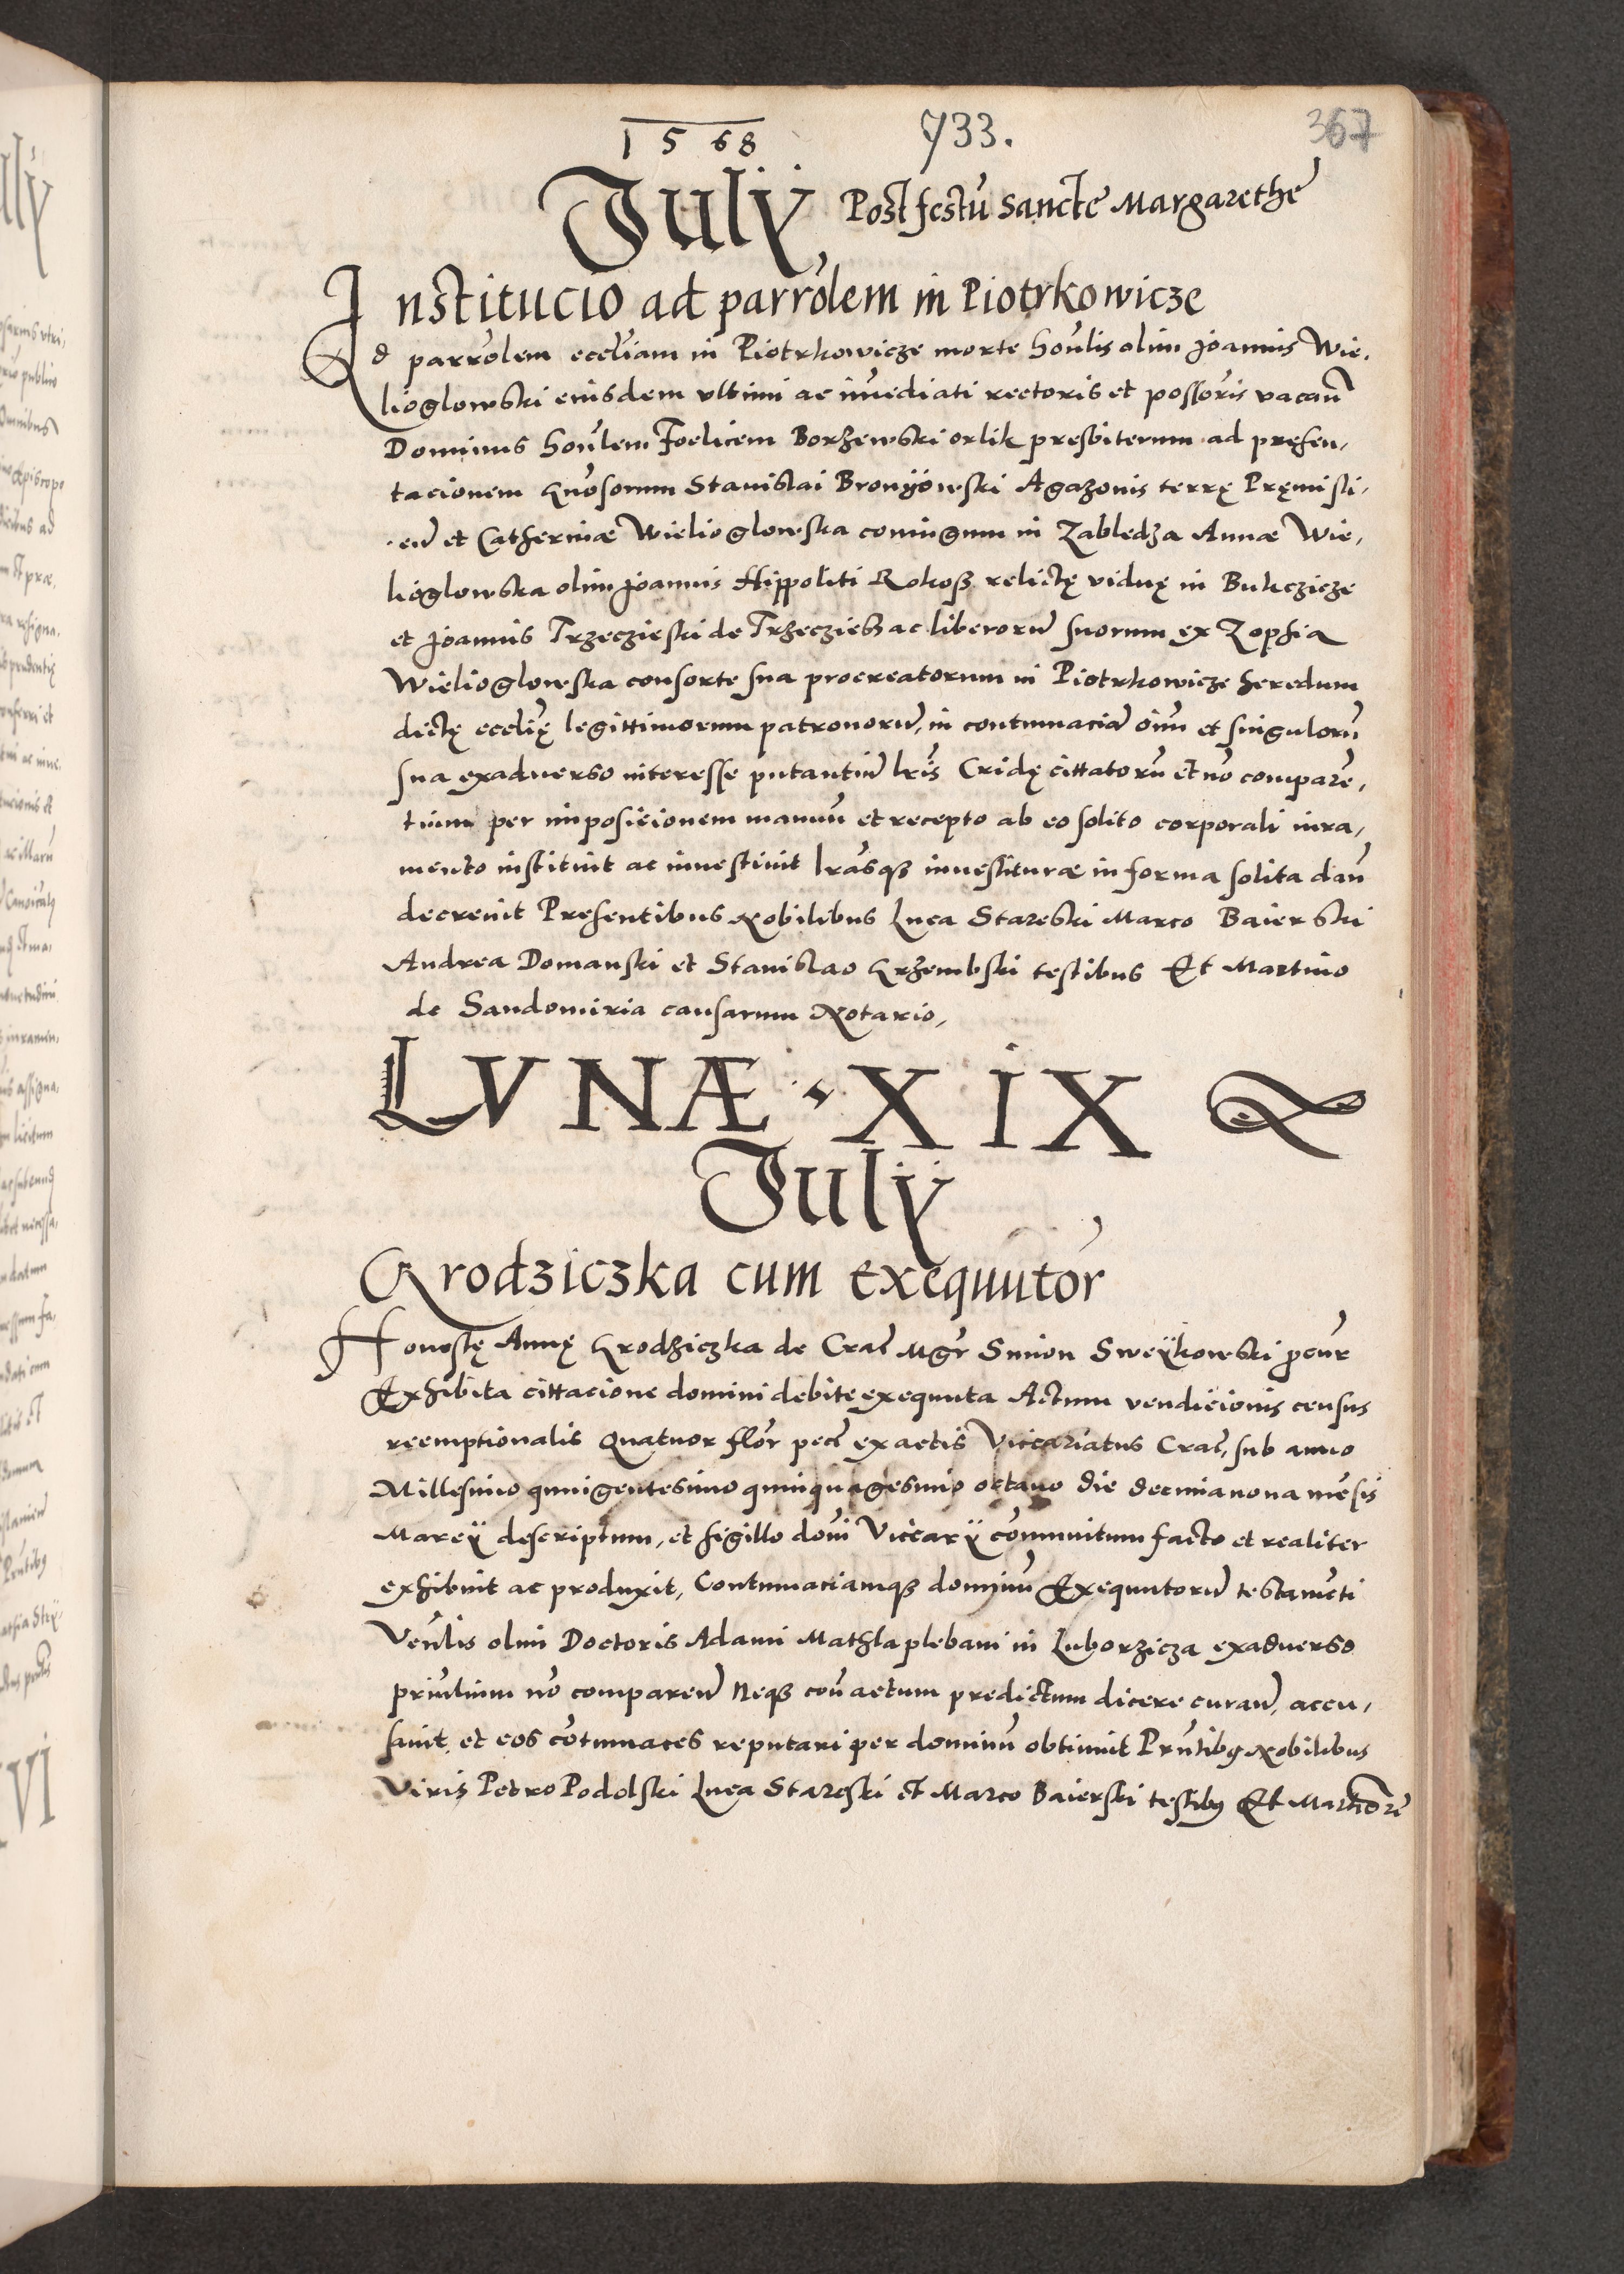 1568
733.
367
July Post festũ Sancte Margarethe
Institucio ad parrōlem in Piotrkowicze
Ad parrōlem eccl̃iam in Piotrkowicze morte honl̃is olim Joannis Wie,
lioglowski eiusdem vltimi ac im̃ediati rectoris et possor̃is vacañ
Dominus honl̃em Foelicem Borzewski orlik presbiterum ad presen,
tacionem Gn̄osorum Stanislai Bronyowski Agazonis terrę Pręmisli,
eñ et Catherinæ Wielioglowska coniugum in Zabledza Annæ Wie,
lioglowska olim Joannis Hippoliti Rokosz relictę viduę in Bukczicze
et Joannis Trzeczieski de Trzecziesz ac liberorũ suorum ex Zophia
Wielioglowska consorte sua procreatorum in Piotrkowicze heredum
dictę eccl̃ię legittimorum patronorũ, in contumaciã oĩm et singulorũ
sua exaduerso interesse putantiũ lr̃is Cridę cittatorũ et nõ comparẽ,
tium per imposicionem manuũ et recepto ab eo solito corporali iura,
mento instituit ac inuestiuit lr̃asqȝ inuestituræ in forma solita dañ
decreuit Presentibus Nobilibus Luca Stareski Marco Baierski
Andrea Domanski et Stanislao Grzembski testibus Et Martino
de Sandomiria causarum Notario,
LVNÆ XIX
July
Grodziczka cum exequutor̃
Honestę Annę Grodziczka de Crac̃ Mgr̃ Simon Sweÿkowski p̃cur̃
Exhibita cittacione domini debite exequuta Actum vendicionis census
reemptionalis quatuor flor̃ pecc̃ ex actis Viccariatus Crac̃, sub anno
Millesimo quingentesimo quinquagesimo octauo die decimanona mẽsis
Marcÿ descriptum, et sigillo dom̃i Viccarÿ com̃unitum facto et realiter
exhibuit ac produxit, Contumaciamqȝ dominũ Exequutorũ testamẽti
Venl̃is olim Doctoris Adami Mathla plebani in Luborzicza exaduerso
prin̄lium nõ comparen̄ Neqȝ con̄ actum predictum dicere curan̄, accu,
sauit et eos cõtumaces reputari per dominũ obtinuit Prñtibȝ Nobilibus
Viris Petro Podolski Luca Stareski et Marco Baierski testibȝ Et Mart